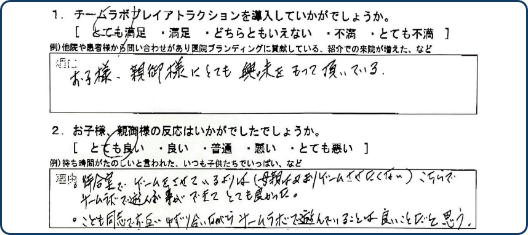 1. チームラボプレイアトラクションを導入していかがでしょうか。
[ とても満足 ・満足 ・どちらともいえない ・不満 ・とても不満 ]
例)他院や患者様から問い合わせがあり医院ブランディングに貢献している、紹介での来院が増えた、など
理由
お子様、親御様にとても興味をもって頂いている。
2. お子様、親御様の反応はいかがでしたでしょうか。
[ とても良い ・良い ・普通 ・悪い ・とても悪い ]
例)待ち時間がたのしいと言われた、いつも子供たちでいっぱい、など
理由
。待合室でゲームをさせているよりは(母親はあまりゲームさせたくない)こちらで
チームラボで遊んだ事ができてとても良かった。
。こども同志でお互いゆずり合いながらチームラボで遊んでいることは良いことだと思う。